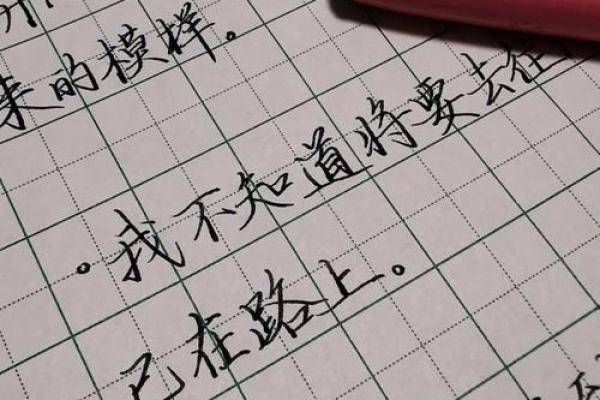 来的模样。
·我不知道将要去往
已在路上。